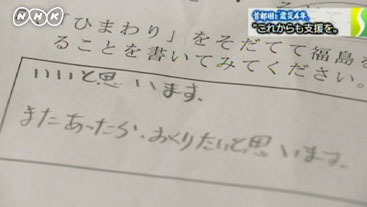 NHK
首都圏と震災4年
"これからも支援を"
ひまわり」をそだてて福島を
ることを書いてみてください。
いいと思います。
またあったら、おくりたいと思います。